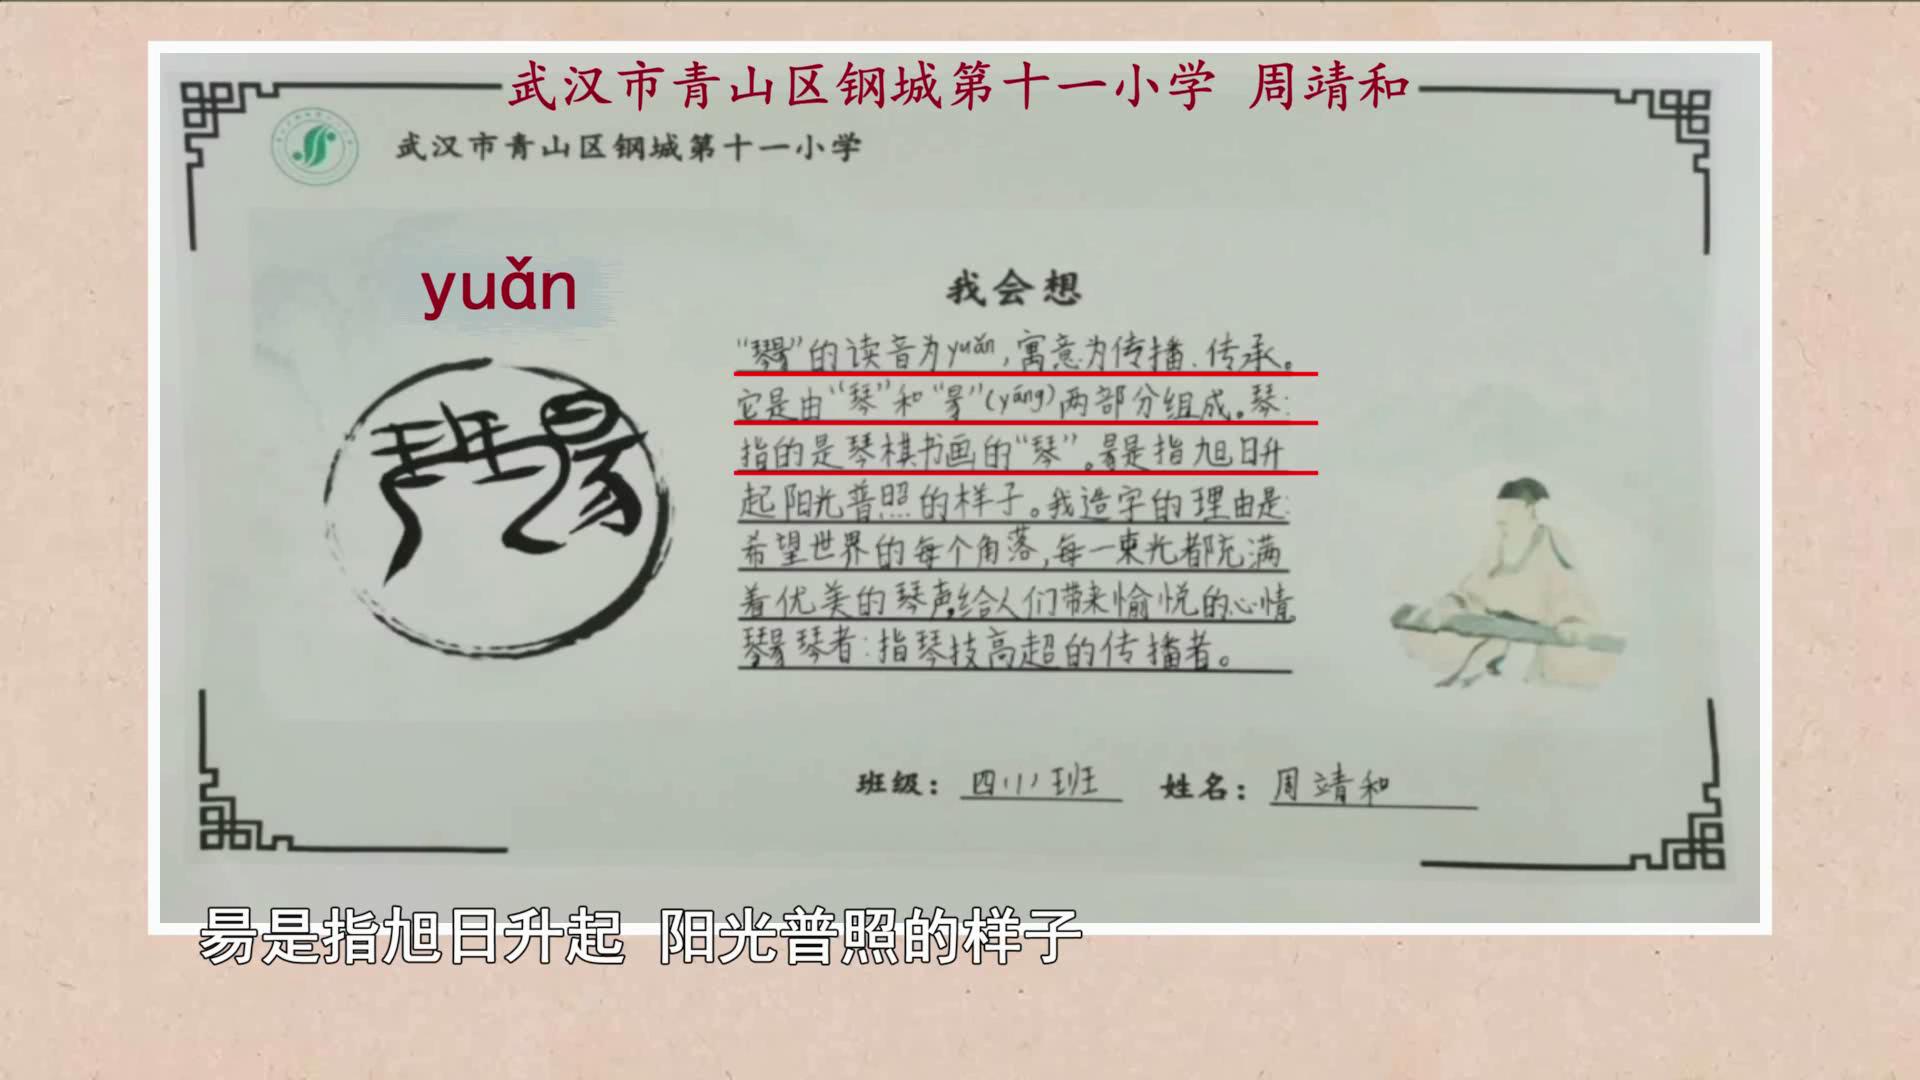 武汉市青山区钢城第十一小学 周靖和
武汉市青山区钢城第十一小学
yuǎn
我会想
“ ”的读音为yuǎn,寓意为传播、传承。
它是由“琴”和“昜”(yáng)两部分组成。琴:
指的是琴棋书画的“琴”。昜是指旭日升
起阳光普照的样子。我造字的理由是:
希望世界的每个角落,每一束光都充满
着优美的琴声,给人们带来愉悦的心情。
琴者:指琴技高超的传播者。
班级: 四(1)班 姓名: 周靖和
昜是指旭日升起 阳光普照的样子